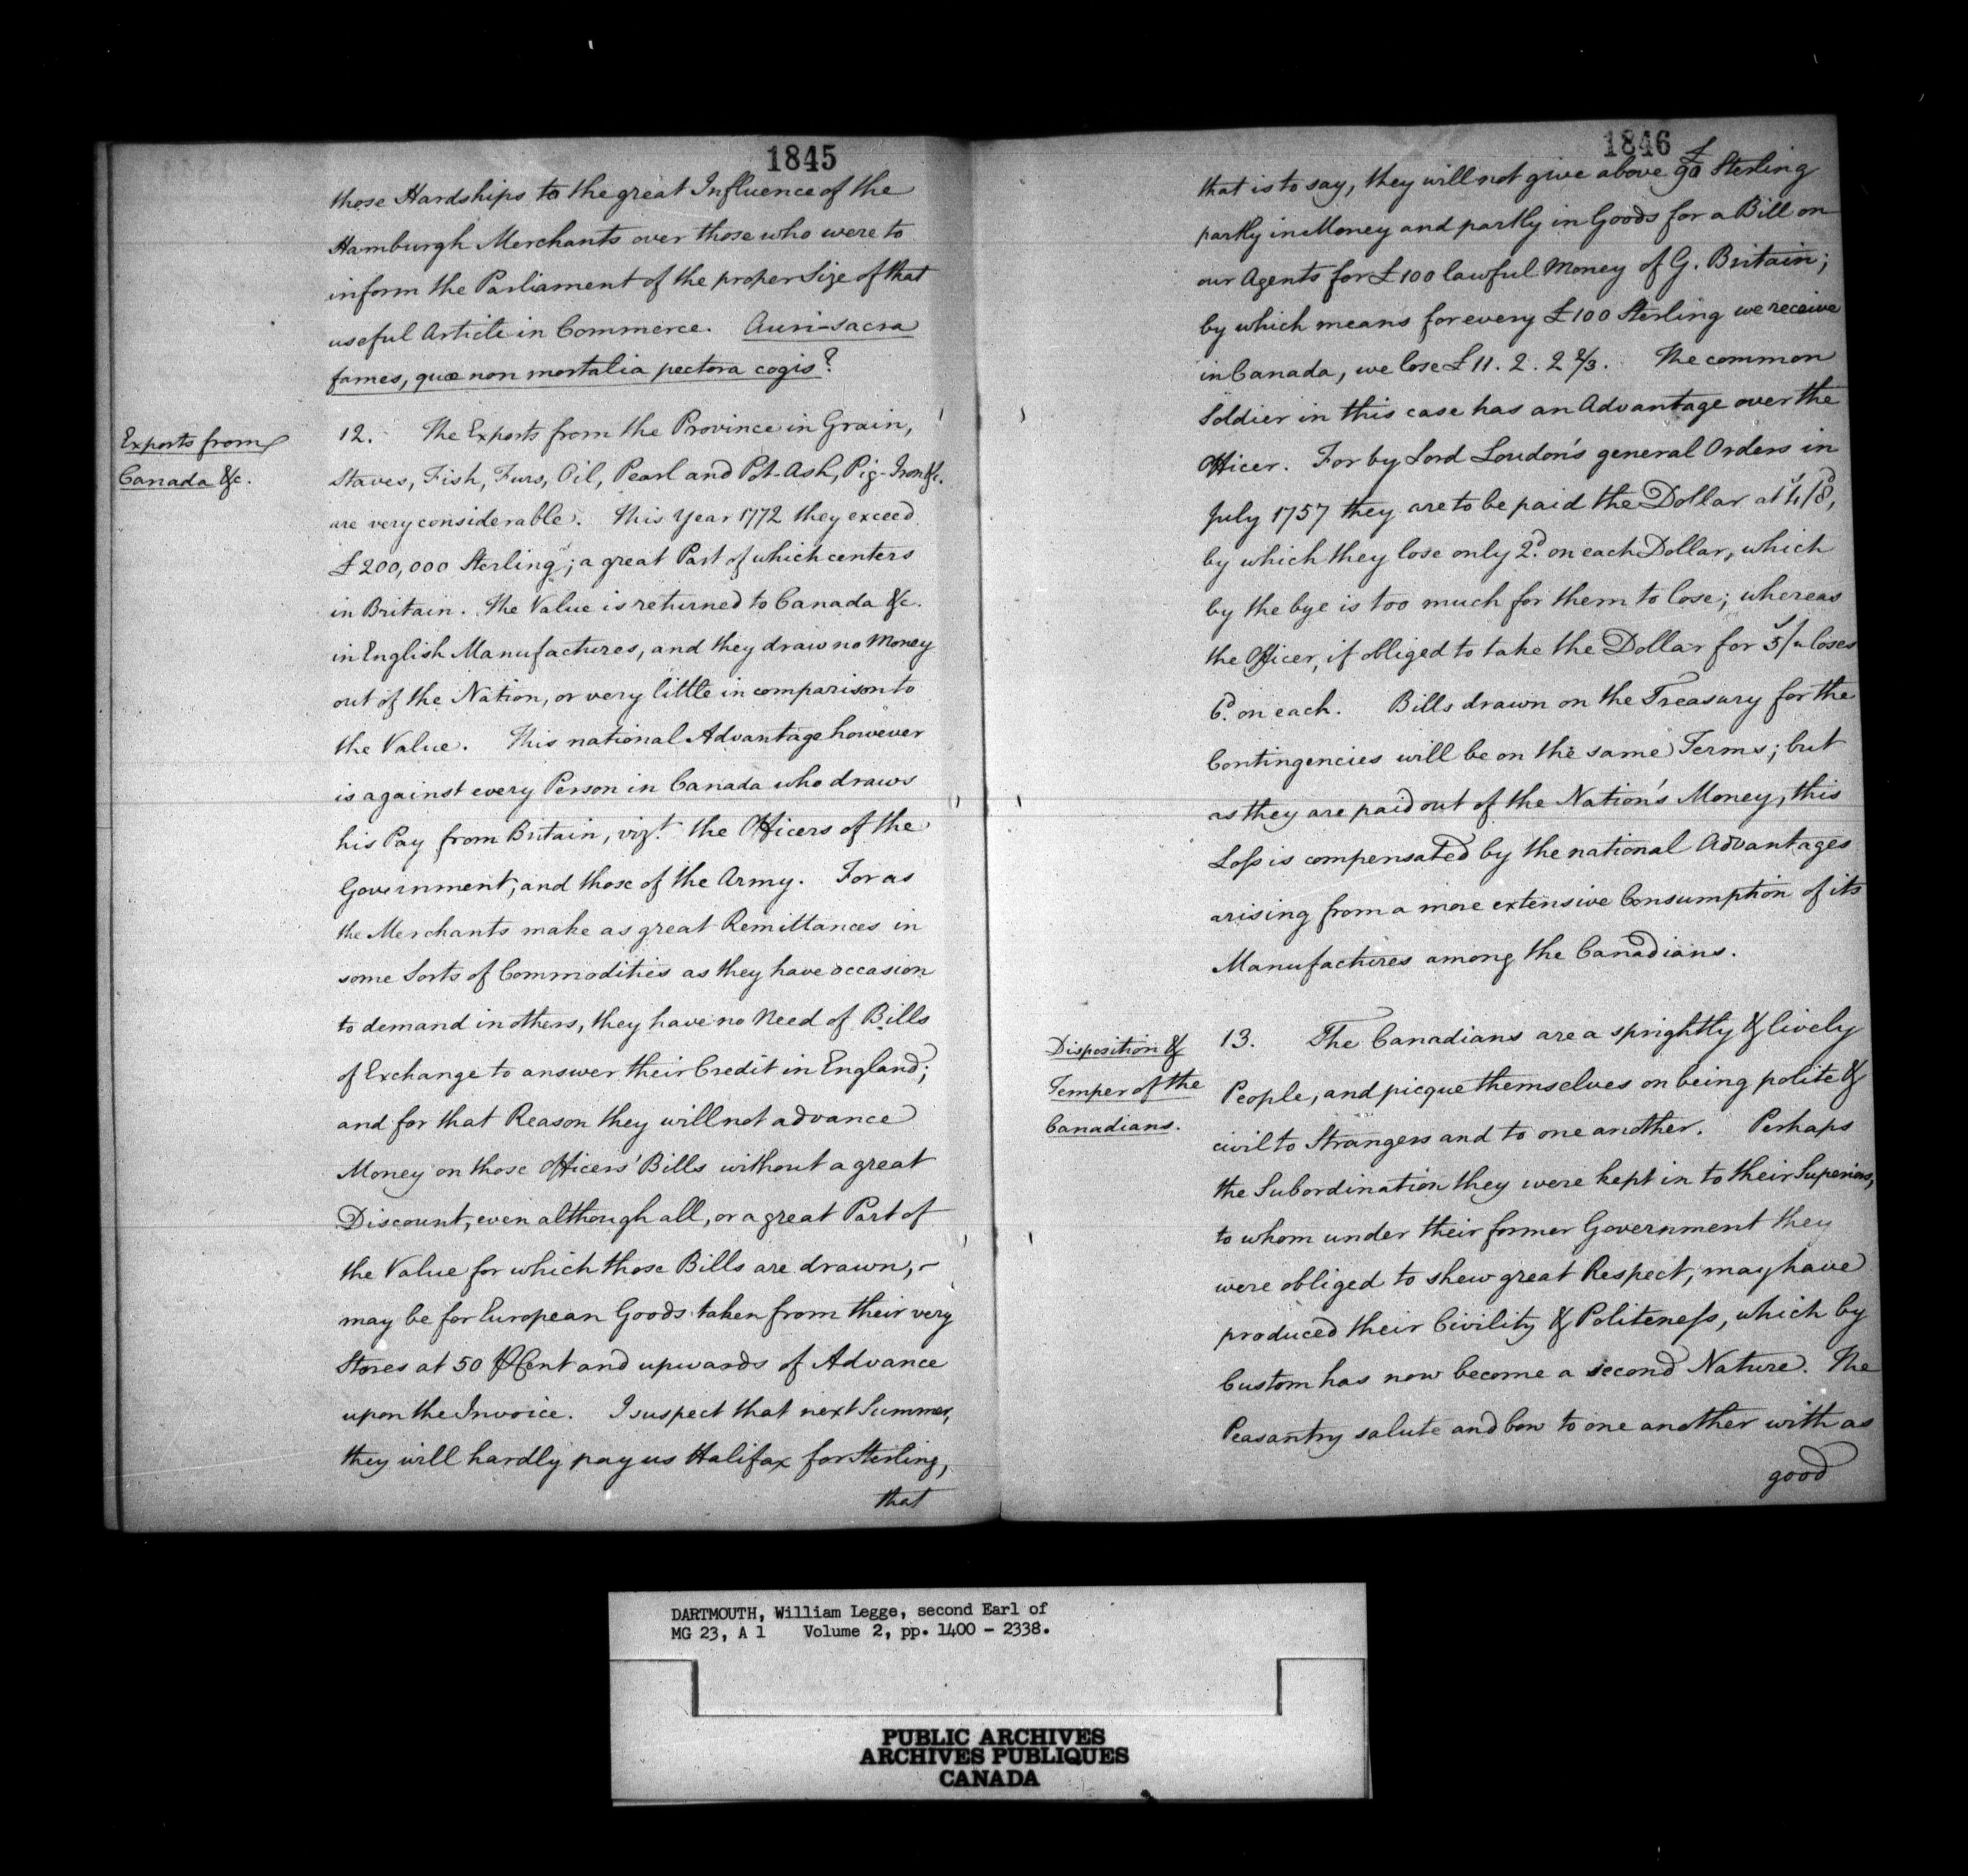 1845
those Hardships to the great Influence of the
Hamburgh Merchants over those who were to
inform the Parliament of the proper Size of that
useful Article in Commerce. Auri-sacra
fames, quæ non mortalia pectora cogis?
Exports from
Canada &c.
12. The Exports from the Province in Grain,
Staves, Fish, Furs, Oil, Pearl and Pot-Ash, Pig-Iron &c.
are very considerable. This Year 1772 they exceed
£200,000 Sterling; a great Part of which centers
in Britain. The Value is returned to Canada &c.
in English Manufactures, and they draw no Money
out of the Nation, or very little in comparison to
the Value. This national Advantage however
is against every Person in Canada who draws
his Pay from Britain, vizt. the Officers of the
Government, and those of the Army. For as
the Merchants make as great Remittances in
some Sorts of Commodities as they have occasion
to demand in others, they have no Need of Bills
of Exchange to answer their Credit in England;
and for that Reason they will not advance
Money on those Officers' Bills without a great
Discount, even although all, or a great Part of
the Value for which those Bills are drawn, -
may be for European Goods taken from their very
Stores at 50 ⅌ Cent and upwards of Advance
upon the Invoice. I suspect that next Summer,
they will hardly pay us Halifax for Sterling,
that
1846
that is to say, they will not give above £90 Sterling
partly in Money and partly in Goods for a Bill on
our Agents for £100 lawful Money of G. Britain;
by which means for every £100 Sterling we receive
in Canada, we lose £11. 2. 2 2/3. The common
Soldier in this case has an Advantage over the
Officer. For by Lord Loudon's general Orders in
July 1757 they are to be paid the Dollar at 4s/8d,
by which they lose only 2d. on each Dollar, which
by the bye is too much for them to lose; whereas
the Officer, if obliged to take the Dollar for 5s/" loses
6d. on each. Bills drawn on the Treasury for the
Contingencies will be on the same Terms; but
as they are paid out of the Nation's Money, this
Loss is compensated by the national Advantages
arising from a more extensive Consumption of its
Manufactures among the Canadians.
Disposition &
Temper of the
Canadians.
13. The Canadians are a sprightly & lively
People, and picque themselves on being polite &
civil to Strangers and to one another. Perhaps
the Subordination they were kept in to their Superiors,
to whom under their former Government they
were obliged to shew great Respect, may have
produced their Civility & Politeness, which by
Custom has now become a second Nature. The
Peasantry salute and bow to one another with as
good
DARTMOUTH, William Legge, second Earl of
MG 23, A 1 Volume 2, pp. 1400 - 2338.
PUBLIC ARCHIVES
ARCHIVES PUBLIQUES
CANADA